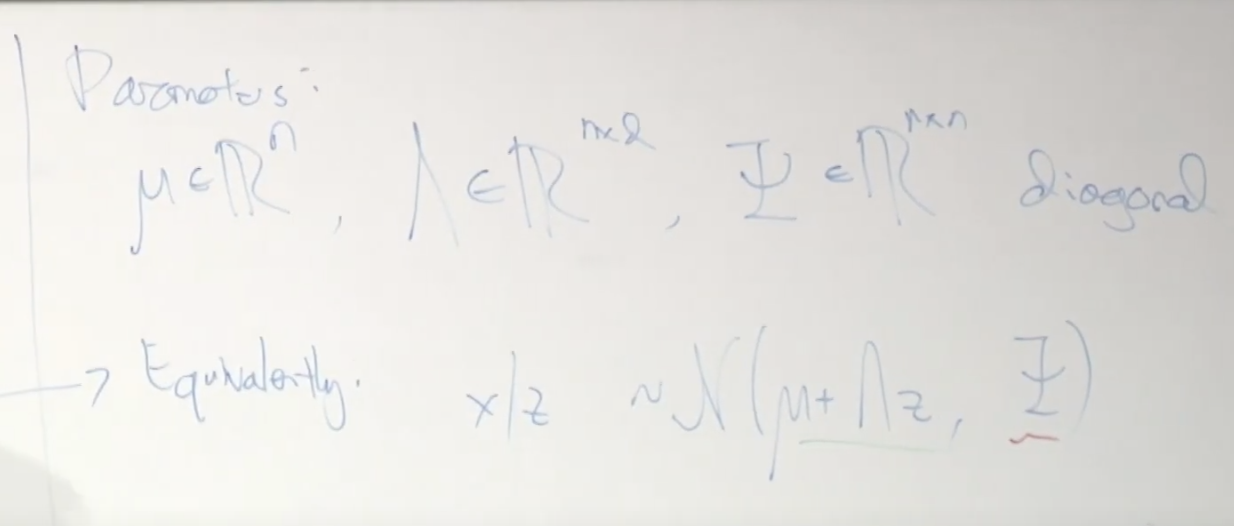 Parameters:
μ ∈ ℝⁿ, Λ ∈ ℝⁿˣᵈ, Ψ ∈ ℝⁿˣⁿ diagonal
→ Equivalently. x|z ~ N(μ + Λz, Ψ)